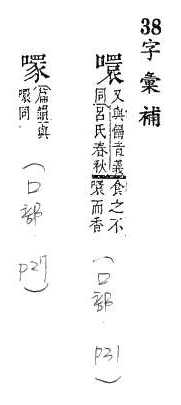 38字彙補
噮
又與音義
同呂氏春秋
食之不
噮而香
(口部 P31)
篇韻與
噮同
(口部 P27)